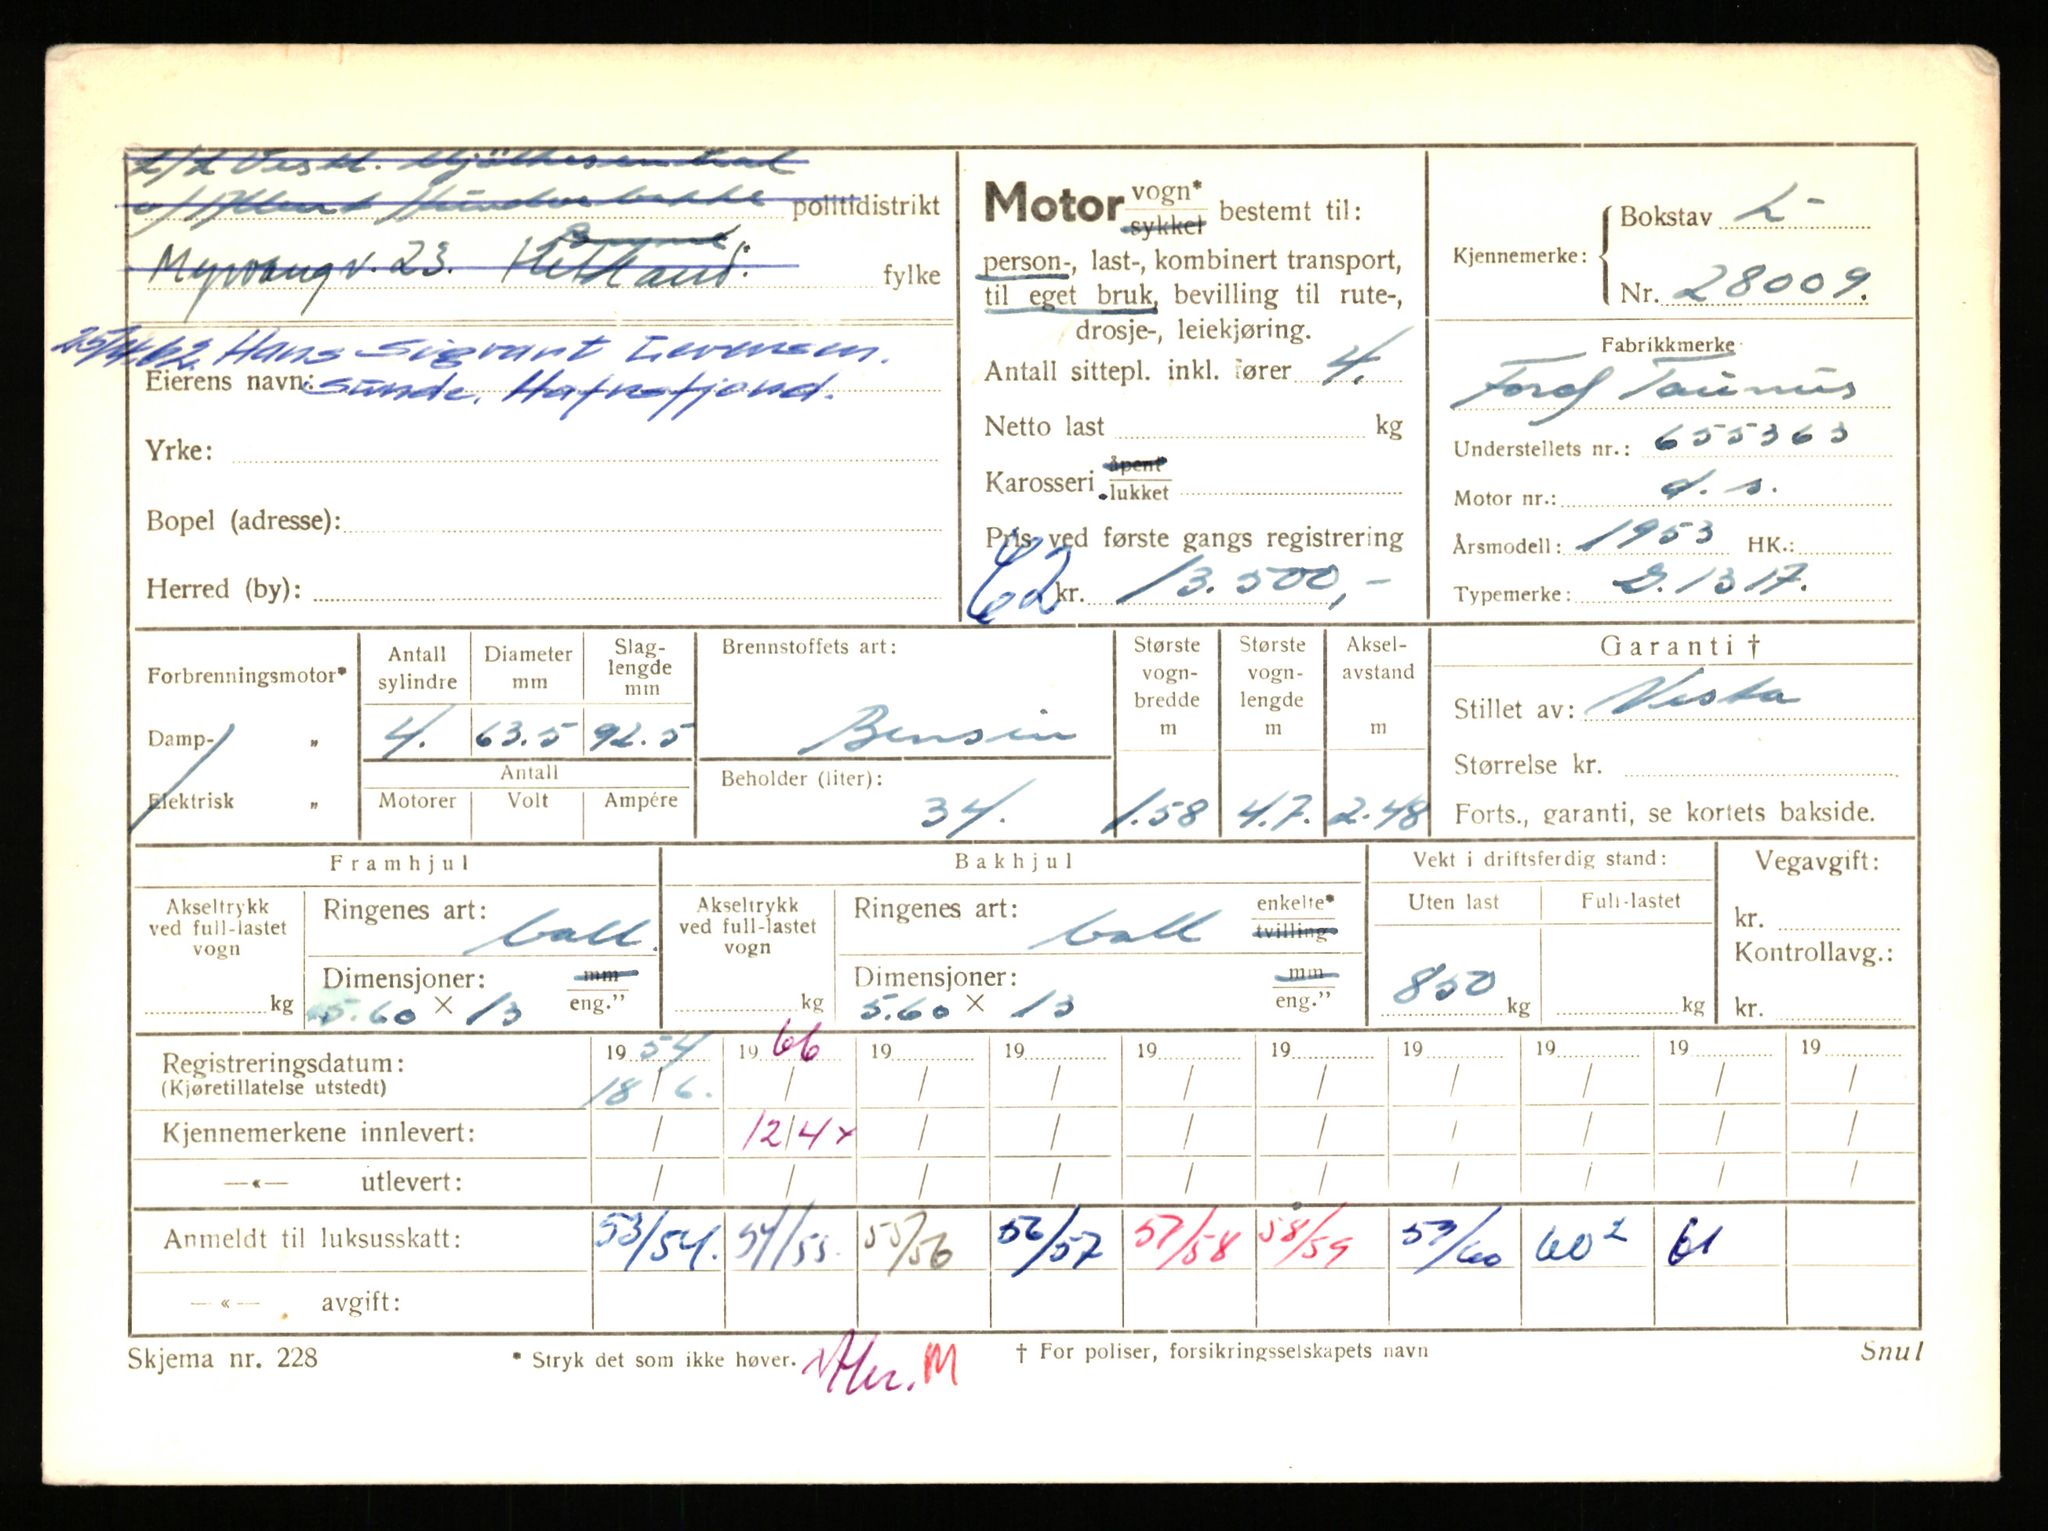 politidistrikt
Myrvang v. 23. Hetland. fylke
25/4.62. Hans Sigvart
Eierens navn: Sunde. Hafrsfjord.
Yrke:
Bopel (adresse):
Herred (by):
Motor vogn* sykkel bestemt til:
person-, last-, kombinert transport,
til eget bruk, bevilling til rute-,
drosje-, leiekjøring.
Antall sittepl. inkl. fører 4.
Netto last kg
Karosseri åpent lukket
Pris ved første gangs registrering
62 kr. 13.500,-
Kjennemerke: Bokstav L-
Nr. 28009.
Fabrikkmerke
Ford Taunus
Understellets nr.: 655363
Motor nr.: d. s.
Årsmodell: 1953 HK.:
Typemerke: 1317.
Forbrenningsmotor*
Damp- „
Elektrisk „
Antall sylindre 4.
Diameter mm 63.5
Slaglengde mm 92.5
Antall
Motorer Volt Ampére
Brennstoffets art:
Bensin
Beholder (liter):
34.
Største vognbredde m 1.58
Største vognlengde m 4.7.
Akselavstand m 2.48
Garanti †
Stillet av: Vesta
Størrelse kr.
Forts., garanti, se kortets bakside.
Framhjul
Akseltrykk ved full-lastet vogn kg
Ringenes art: ball.
Dimensjoner: mm
5.60 × 13 eng."
Bakhjul
Akseltrykk ved full-lastet vogn kg
Ringenes art: ball enkelte* tvilling
Dimensjoner: mm
5.60 × 13 eng."
Vekt i driftsferdig stand:
Uten last Full-lastet
850 kg kg
Vegavgift:
kr.
Kontrollavg.:
kr.
Registreringsdatum: 19 54 19 66 19 19 19 19 19 19 19 19
(Kjøretillatelse utstedt) 18/6. / / / / / / / / /
Kjennemerkene innlevert: / 12/4 x / / / / / / / /
—«— utlevert: / / / / / / / / / /
Anmeldt til luksusskatt: 53/54. 54/55. 55/56 56/57 57/58 58/59 59/60 60² 61
—«— avgift:
Skjema nr. 228
* Stryk det som ikke høver.
M
† For poliser, forsikringsselskapets navn
Snul